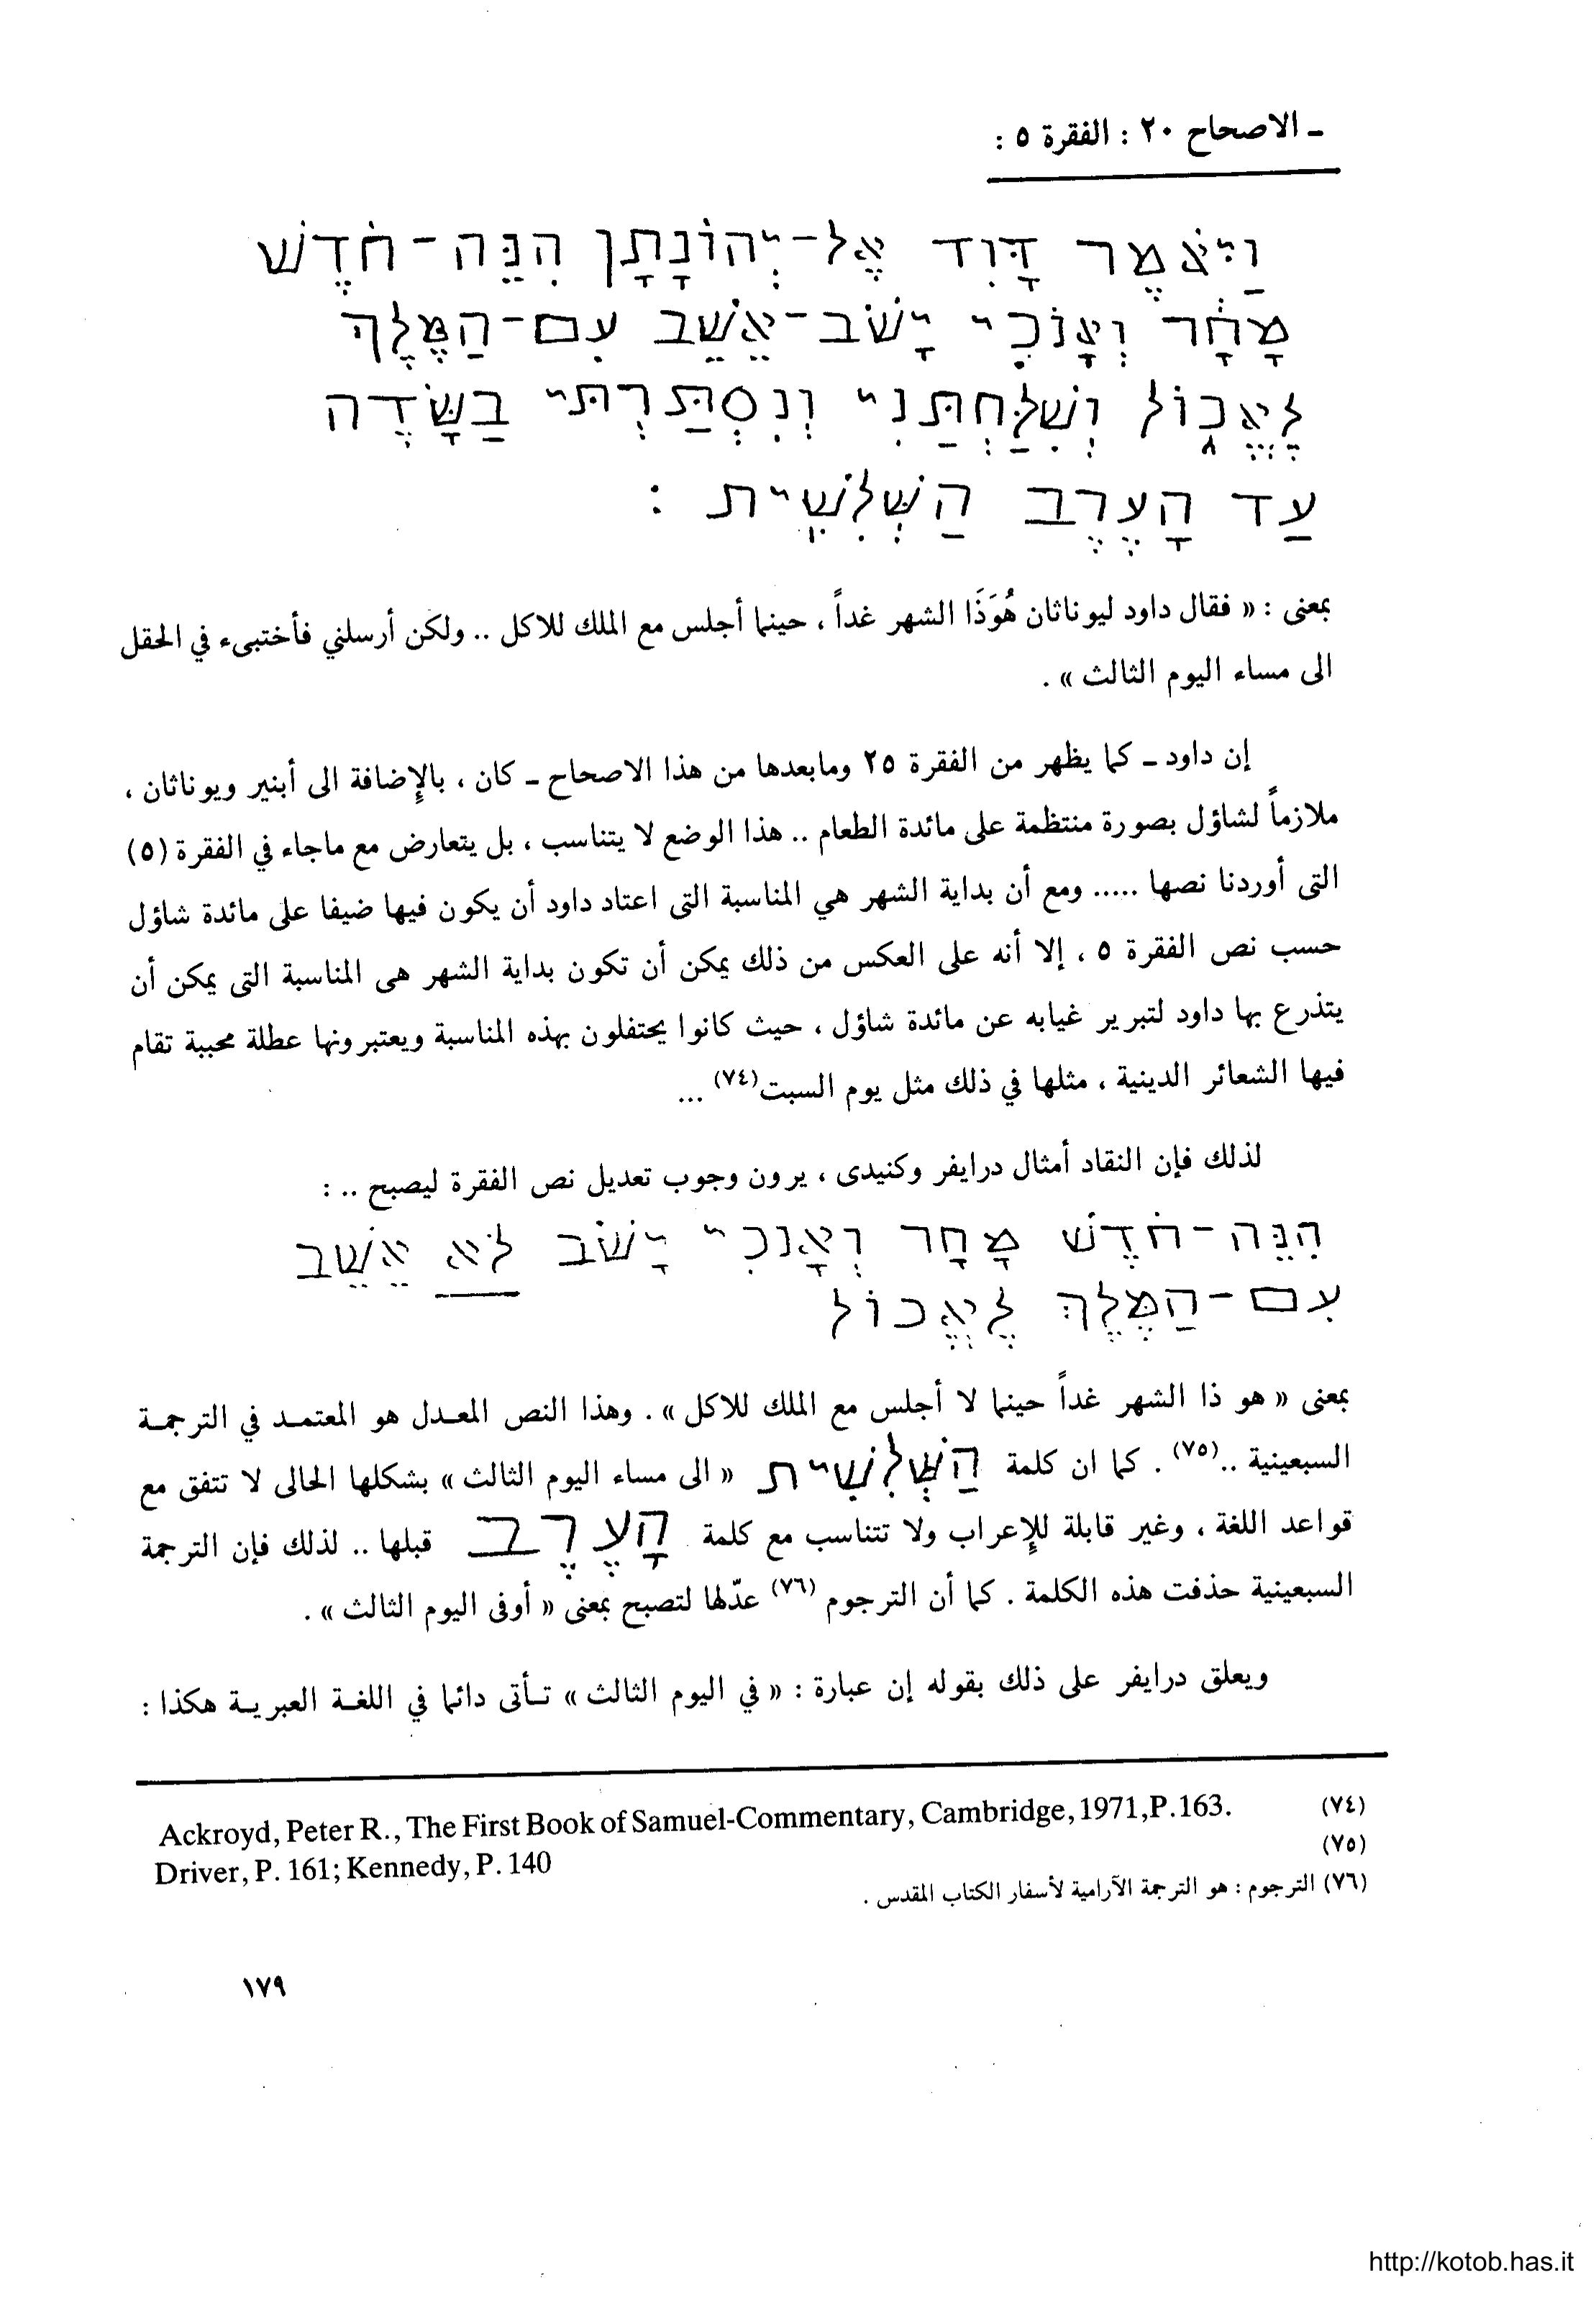 ـ الاصحاح ٢٠ : الفقرة ٥ :
וַיֹּאמֶר דָּוִד אֶל-יְהוֹנָתָן הִנֵּה-חֹדֶשׁ
מָחָר וְאָנֹכִי יָשֹׁב-אֵשֵׁב עִם-הַמֶּלֶךְ
לֶאֱכוֹל וְשִׁלַּחְתַּנִי וְנִסְתַּרְתִּי בַּשָּׂדֶה
עַד הָעֶרֶב הַשְּׁלִשִׁית :
بمعنى : « فقال داود ليوناثان هُوَذَا الشهر غداً ، حينما أجلس مع الملك للاكل .. ولكن أرسلني فأختبىء في الحقل
الى مساء اليوم الثالث » .
إن داود ـ كما يظهر من الفقرة ٢٥ ومابعدها من هذا الاصحاح ـ كان ، بالإضافة الى أبنير ويوناثان ،
ملازماً لشاؤل بصورة منتظمة على مائدة الطعام .. هذا الوضع لا يتناسب ، بل يتعارض مع ماجاء في الفقرة (٥)
التى أوردنا نصها ..... ومع أن بداية الشهر هي المناسبة التى اعتاد داود أن يكون فيها ضيفا على مائدة شاؤل
حسب نص الفقرة ٥ ، إلا أنه على العكس من ذلك يمكن أن تكون بداية الشهر هى المناسبة التى يمكن أن
يتذرع بها داود لتبرير غيابه عن مائدة شاؤل ، حيث كانوا يحتفلون بهذه المناسبة ويعتبرونها عطلة محببة تقام
فيها الشعائر الدينية ، مثلها في ذلك مثل يوم السبت(٧٤) ...
لذلك فإن النقاد أمثال درايفر وكنيدى ، يرون وجوب تعديل نص الفقرة ليصبح .. :
הִנֵּה-חֹדֶשׁ מָחָר וְאָנֹכִי יָשֹׁב לֹא אֵשֵׁב
עִם-הַמֶּלֶךְ לֶאֱכוֹל
بمعنى « هو ذا الشهر غداً حينما لا أجلس مع الملك للاكل » . وهذا النص المعدل هو المعتمد في الترجمة
السبعينية ..(٧٥) . كما ان كلمة הַשְּׁלִשִׁית « الى مساء اليوم الثالث » بشكلها الحالى لا تتفق مع
قواعد اللغة ، وغير قابلة للإعراب ولا تتناسب مع كلمة הָעֶרֶב قبلها .. لذلك فإن الترجمة
السبعينية حذفت هذه الكلمة . كما أن الترجوم (٧٦) عدّلها لتصبح بمعنى « أوفى اليوم الثالث » .
ويعلق درايفر على ذلك بقوله إن عبارة : « في اليوم الثالث » تأتى دائما في اللغة العبرية هكذا :
Ackroyd, Peter R., The First Book of Samuel-Commentary, Cambridge, 1971, P. 163. (٧٤)
Driver, P. 161; Kennedy, P. 140 (٧٥)
(٧٦) الترجوم : هو الترجمة الآرامية لأسفار الكتاب المقدس .
١٧٩
http://kotob.has.it